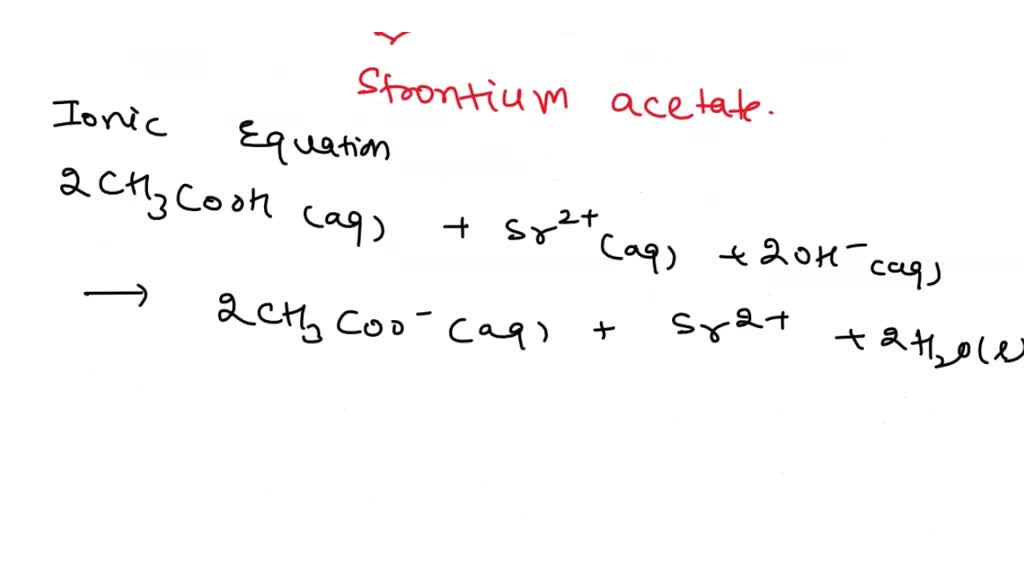 Strontium acetate.
Ionic Equation
2CH₃COOH (aq) + Sr²⁺ (aq) + 2OH⁻ (aq)
⟶ 2CH₃COO⁻ (aq) + Sr²⁺ + 2H₂O(l)